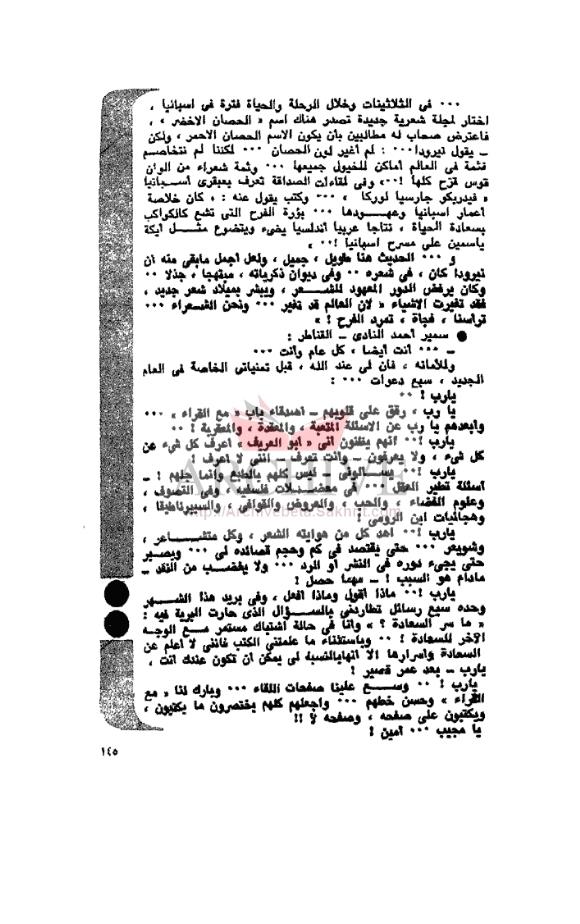 ... في الثلاثينات وخلال الرحلة والحياة فترة في اسبانيا ،
اختار لمجلة شعرية جديدة تصدر هناك اسم « الحصان الاخضر » ،
فاعترض صحاب له مطالبين بأن يكون الاسم الحصان الاحمر ، ولكن
ـ يقول نيرودا ... : لم أغير لون الحصان ... لكننا لم نتخاصم
فثمة في العالم أماكن للخيول جميعها ... وثمة شعراء من الوان
قوس قزح كلها ! .. وفى لقاءات الصداقة تعرف بعبقرى أسـبانيا
« فيدريكو جارسيا لوركا » ، ... وكتب يقول عنه : ، كان خلاصة
أعمار اسبانيا وعهـودها ... بؤرة الفرح التى تشع كالكواكب
بسعادة الحياة ، نتاجا عربيا أندلسيا يضىء ويتضوع مثـل أيكة
ياسمين على مسرح اسبانيا ! ..
و ... الحديث هنا طويل ، جميل ، ولعل اجمل مابقى منه أن
نيرودا كان ، فى شعره .. وفى ديوان ذكرياته ، مبتهجا ، جذلا ..
وكان يرفض الدور المعهود للشـعر ، ويبشر بميلاد شعر جديد ،
فقد تغيرت الاشياء « لان العالم قد تغير ... ونحن الشـعراء ...
ترأسنا ، فجأة ، تمرد الفرح ! »
● سمير أحمد النادى ـ القناطر :
ـ ... أنت أيضا ، كل عام وأنت ...
وللأمانه ، فان لى عند الله ، قبل تمنياتى الخاصة فى العام
الجديد ، سبع دعوات ... :
يارب ! ..
يا رب ، رفق على قلوبهم ـ أصدقاء باب « مع القراء » ...
وأبعدهم يا رب عن الاسئلة المتعبة ، والمعقدة ، والعقربة ! ..
يارب ! .. انهم يظنون أنى « أبو العريف » أعرف كل شىء عن
كل شىء ، ولا يعرفون ـ وأنت تعرف ـ أننى لا أعرف !
يارب ! .. يسـألونى ـ ليس كلهم بالطبع وانما جلهم ! ـ
أسئلة تطير العقل ... فى معضـلات فلسفية ، وفى التصوف ،
وعلوم الفضاء ، والحب ، والعروض والقوافى ، والسيبرناطيقا ،
وهجائيات ابن الرومى !
يارب ! .. اهد كل من هوايته الشعر ، وكل متشـاعر ،
وشويعر ... حتى يقتصد فى كم وحجم قصائده لى ... ويصبر
حتى يجىء دوره فى النشر أو الرد ... ولا يغضـب من النقد ـ
مادام هو السبب ! ـ مهما حصل !
يارب ! .. ماذا أقول وماذا أفعل ، وفى بريد هذا الشـهر
وحده سبع رسائل تطاردنى بالسـؤال الذى حارت البرية فيه :
« ما سر السعادة ؟ » وأنا فى حالة اشتباك مستمر مـع الوجـه
الآخر للسعادة ! .. وباستثناء ما علمتنى الكتب فاننى لا أعلم عن
السعادة وأسرارها الا أنها بالنسبة لى يمكن أن تكون عندك أنت ،
يارب ـ بعد عمر قصير !
يارب ! .. وسـع علينا صفحات اللقاء ... وبارك لنا « مع
القراء » وحسن خطهم ... واجعلهم كلهم يختصرون ما يكتبون ،
ويكتبون على صفحه ، وصفحه لا !!
يا مجيب ... آمين !
١٤٥
ARCHIVE
http://Archivebeta.Sakhrit.com